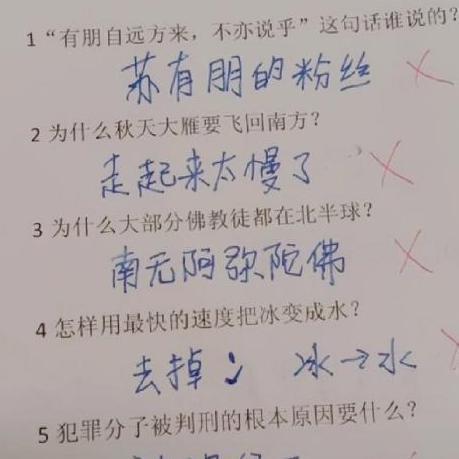 1“有朋自远方来，不亦说乎”这句话谁说的？
苏有朋的粉丝
2 为什么秋天大雁要飞回南方？
走起来太慢了
3 为什么大部分佛教徒都在北半球？
南无阿弥陀佛
4 怎样用最快的速度把冰变成水？
去掉冫 冰→水
5 犯罪分子被判刑的根本原因要什么？